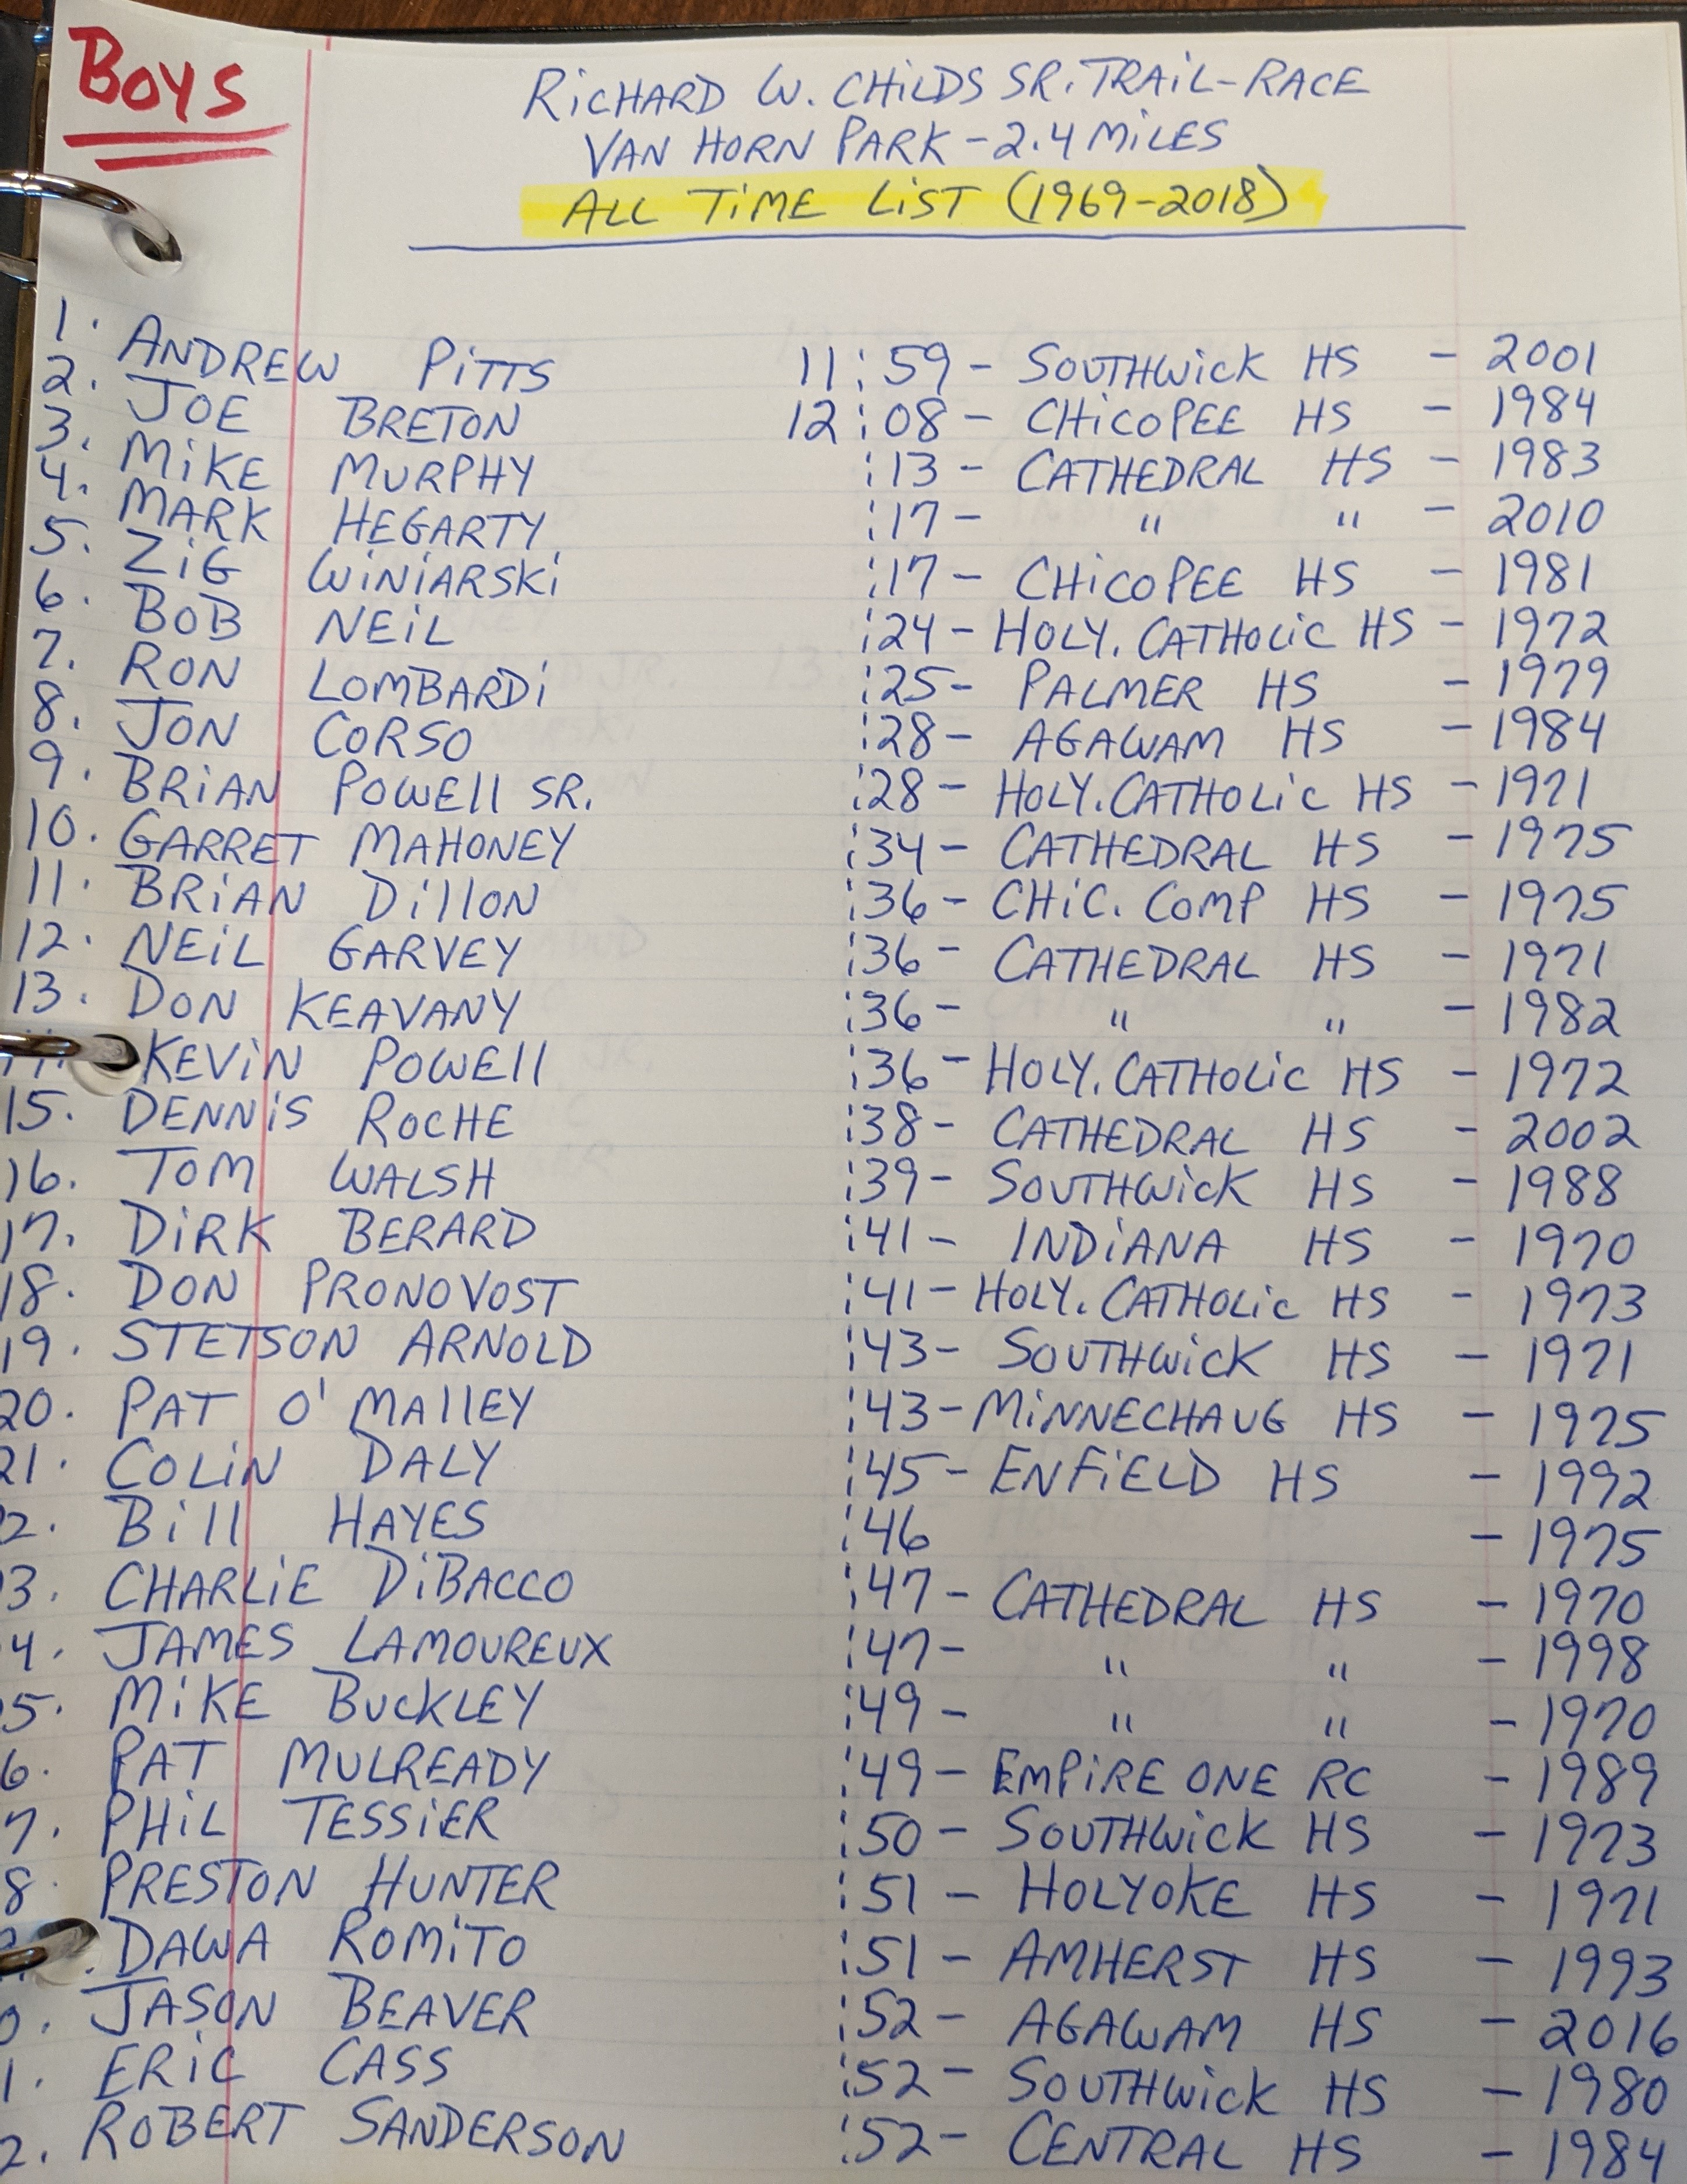 BOYS
RICHARD W. CHILDS SR. TRAIL-RACE
VAN HORN PARK - 2.4 MILES
ALL TIME LIST (1969-2018)
1. ANDREW PITTS 11:59 - SOUTHWICK HS - 2001
2. JOE BRETON 12:08 - CHICOPEE HS - 1984
3. MIKE MURPHY :13 - CATHEDRAL HS - 1983
4. MARK HEGARTY :17 - " " - 2010
5. ZIG WINIARSKI :17 - CHICOPEE HS - 1981
6. BOB NEIL :24 - HOLY. CATHOLIC HS - 1972
7. RON LOMBARDI :25 - PALMER HS - 1979
8. JON CORSO :28 - AGAWAM HS - 1984
9. BRIAN POWELL SR. :28 - HOLY. CATHOLIC HS - 1971
10. GARRET MAHONEY :34 - CATHEDRAL HS - 1975
11. BRIAN DILLON :36 - CHIC. COMP HS - 1975
12. NEIL GARVEY :36 - CATHEDRAL HS - 1971
13. DON KEAVANY :36 - " " - 1982
KEVIN POWELL :36 - HOLY. CATHOLIC HS - 1972
15. DENNIS ROCHE :38 - CATHEDRAL HS - 2002
16. TOM WALSH :39 - SOUTHWICK HS - 1988
17. DIRK BERARD :41 - INDIANA HS - 1970
18. DON PRONOVOST :41 - HOLY. CATHOLIC HS - 1973
19. STETSON ARNOLD :43 - SOUTHWICK HS - 1971
20. PAT O'MALLEY :43 - MINNECHAUG HS - 1975
21. COLIN DALY :45 - ENFIELD HS - 1992
2. BILL HAYES :46 - 1975
3. CHARLIE DIBACCO :47 - CATHEDRAL HS - 1970
4. JAMES LAMOUREUX :47 - " " - 1998
5. MIKE BUCKLEY :49 - " " - 1970
6. PAT MULREADY :49 - EMPIRE ONE RC - 1989
7. PHIL TESSIER :50 - SOUTHWICK HS - 1973
8. PRESTON HUNTER :51 - HOLYOKE HS - 1971
. DAWA ROMITO :51 - AMHERST HS - 1993
0. JASON BEAVER :52 - AGAWAM HS - 2016
1. ERIC CASS :52 - SOUTHWICK HS - 1980
2. ROBERT SANDERSON :52 - CENTRAL HS - 1984